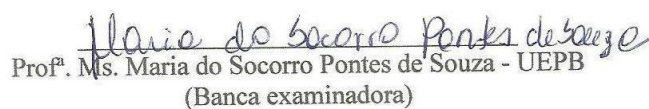 Maria do Socorro Pontes de Souza
Profª. Ms. Maria do Socorro Pontes de Souza - UEPB
(Banca examinadora)